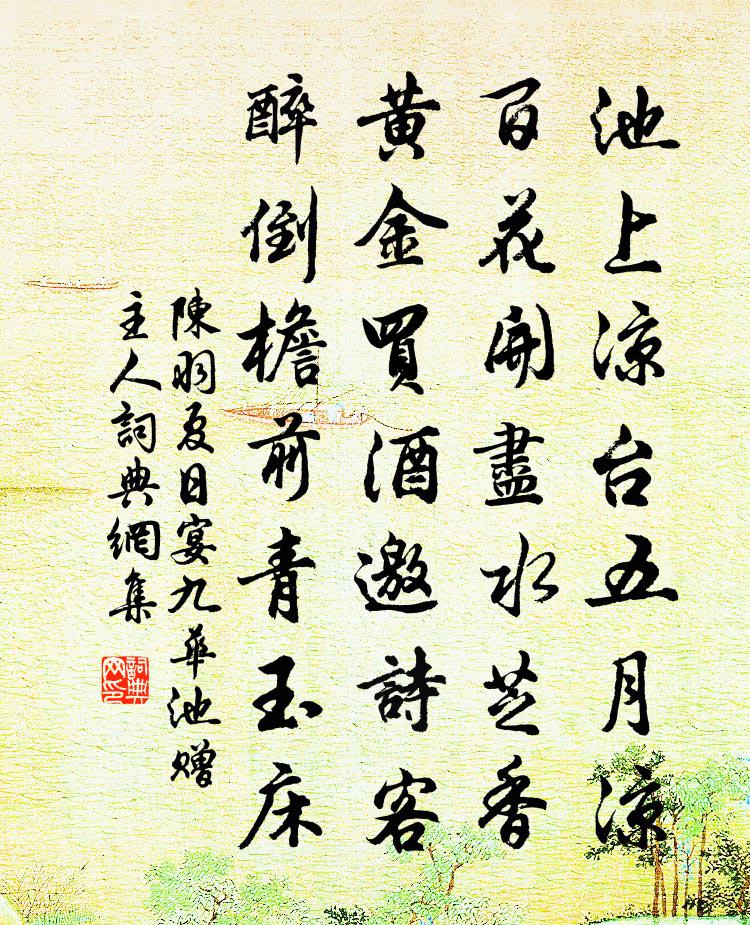 池上凉台五月凉
百花開盡水芝香
黃金買酒邀詩客
醉倒檐前青玉床
陳羽夏日宴九華池贈
主人詞典網集
詞典网印